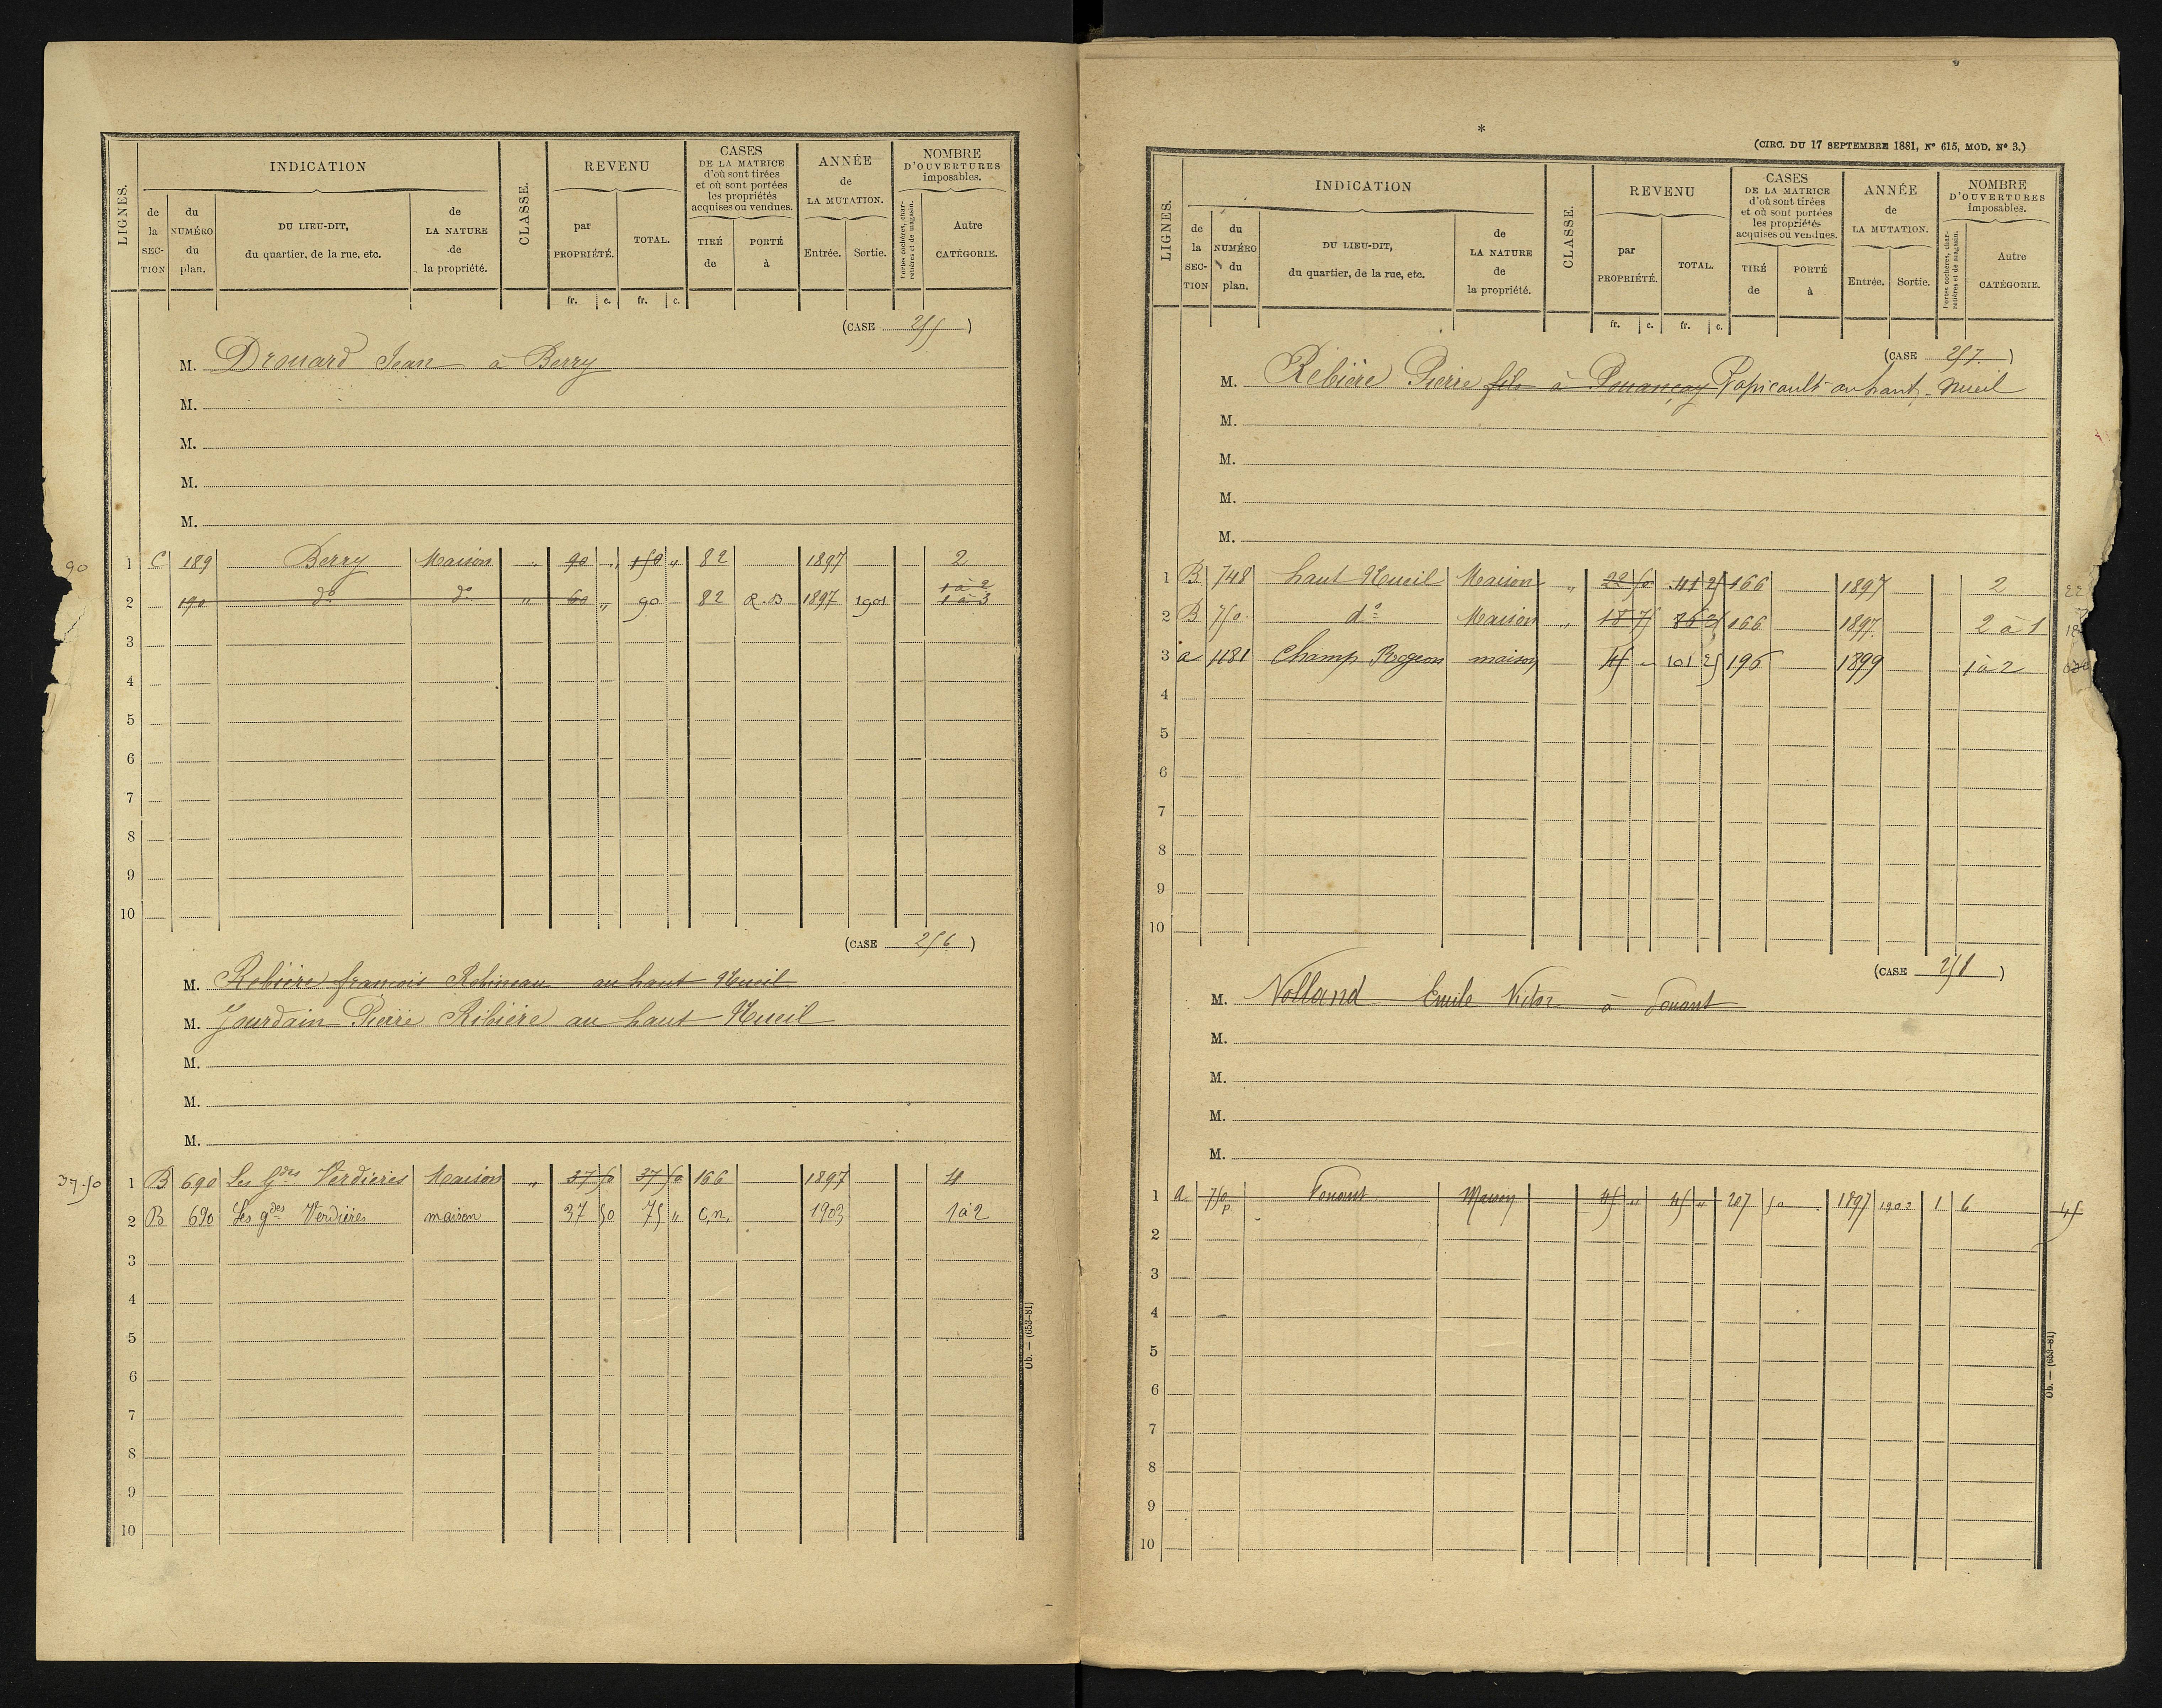 LIGNES. INDICATION CLASSE. REVENU CASES DE LA MATRICE d'où sont tirées et où sont portées les propriétés acquises ou vendues. ANNÉE de LA MUTATION. NOMBRE D'OUVERTURES imposables.
de la SECTION du NUMÉRO du plan. DU LIEU-DIT, du quartier, de la rue, etc. de LA NATURE de la propriété. par PROPRIÉTÉ. TOTAL. TIRÉ de PORTÉ à Entrée. Sortie. Portes cochères, charretières et de magasin. Autre CATÉGORIE.
fr. c. fr. c.
(CASE 255)
M. Drouard Jean à Berry
M.
M.
M.
M.
90 1 C 189 Berry Maison " 90 " 150 " 82 1897 2
1 à 2
2 190 do do " 60 " 90 82 R.B 1897 1901 1 à 3
3
4
5
6
7
8
9
10
(CASE 256)
M. Rebière francois Robineau au haut Nueil
M. Jourdain Pierre Ribière au haut Nueil
M.
M.
M.
37.50 1 B 690 Les Gdes Verdières Maison " 37 50 37 50 166 1897 4
2 B 690 Les gdes Verdières maison 37 50 75 " C.n. 1903 1 à 2
3
4
5
6
7
8
9
10
Ob. — (653-81)
*
(CIRC. DU 17 SEPTEMBRE 1881, N° 615, MOD. N° 3.)
LIGNES. INDICATION CLASSE. REVENU CASES DE LA MATRICE d'où sont tirées et où sont portées les propriétés acquises ou vendues. ANNÉE de LA MUTATION. NOMBRE D'OUVERTURES imposables.
de la SECTION du NUMÉRO du plan. DU LIEU-DIT, du quartier, de la rue, etc. de LA NATURE de la propriété. par PROPRIÉTÉ. TOTAL. TIRÉ de PORTÉ à Entrée. Sortie. Portes cochères, charretières et de magasin. Autre CATÉGORIE.
fr. c. fr. c.
(CASE 257)
M. Rebière Pierre fils à Pouançay Papicault au haut Nueil
M.
M.
M.
M.
1 B 748 haut Nueil Maison " 22 50 41 25 166 1897 2 22
2 B 750 do Maison " 18 75 166 1897 2 à 1
3 a 1181 Champ maison 45 " 101 25 196 1899 1 à 2
4
5
6
7
8
9
10
(CASE 258)
M. Nolland Emile Victor à Pouant
M.
M.
M.
M.
1 a 750 p. Pouant Maison 45 " 45 " 207 50 1897 1902 1 6 45
2
3
4
5
6
7
8
9
10
Ob. — (653-81)